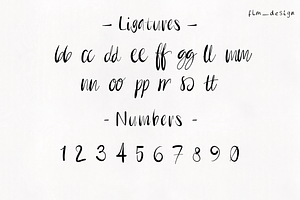 flm_design
- Ligatures -
bb cc dd ee ff gg ll mm
nn oo pp rr ss tt
- Numbers -
1 2 3 4 5 6 7 8 9 0